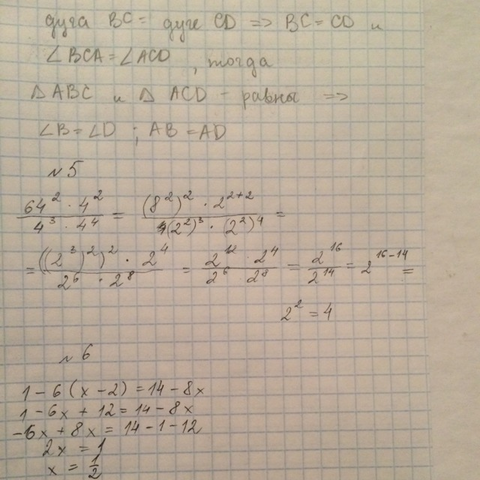 дуга BC = дуге CD => BC = CD и
∠BCA = ∠ACD , тогда
△ ABC и △ ACD - равны =>
∠B = ∠D ; AB = AD
№5
(64² · 4²)/(4³ · 4⁴) = ((8²)² · 2²⁺²)/((2²)³ · (2²)⁴) =
= (((2³)²)² · 2⁴)/(2⁶ · 2⁸) = (2¹² · 2⁴)/(2⁶ · 2⁸) = 2¹⁶/2¹⁴ = 2¹⁶⁻¹⁴ =
2² = 4
№6
1 - 6(x - 2) = 14 - 8x
1 - 6x + 12 = 14 - 8x
-6x + 8x = 14 - 1 - 12
2x = 1
x = 1/2